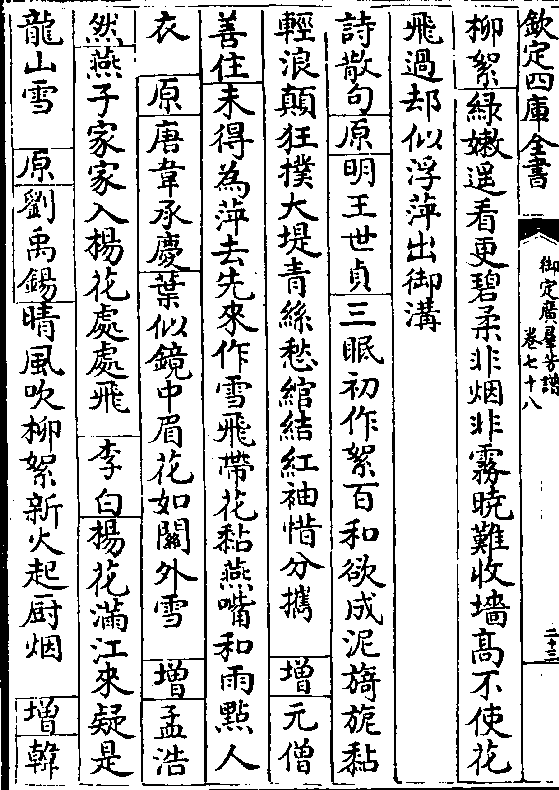 欽定四庫全書
御定廣羣芳譜
卷七十八
二十三
柳絮綠嫩遥看更碧柔非烟非霧曉難收墙高不使花
飛過却似浮萍出御溝
詩散句原明王世貞三眠初作絮百和欲成泥旖旎黏
輕浪顛狂撲大堤青絲愁綰結紅袖惜分攜 增元僧
善住未得為萍去先來作雪飛帶花黏燕嘴和雨點人
衣 原唐韋承慶葉似鏡中眉花如關外雪 增孟浩
然燕子家家入楊花處處飛 李白楊花滿江來疑是
龍山雪 原劉禹錫晴風吹柳絮新火起厨烟 增韓